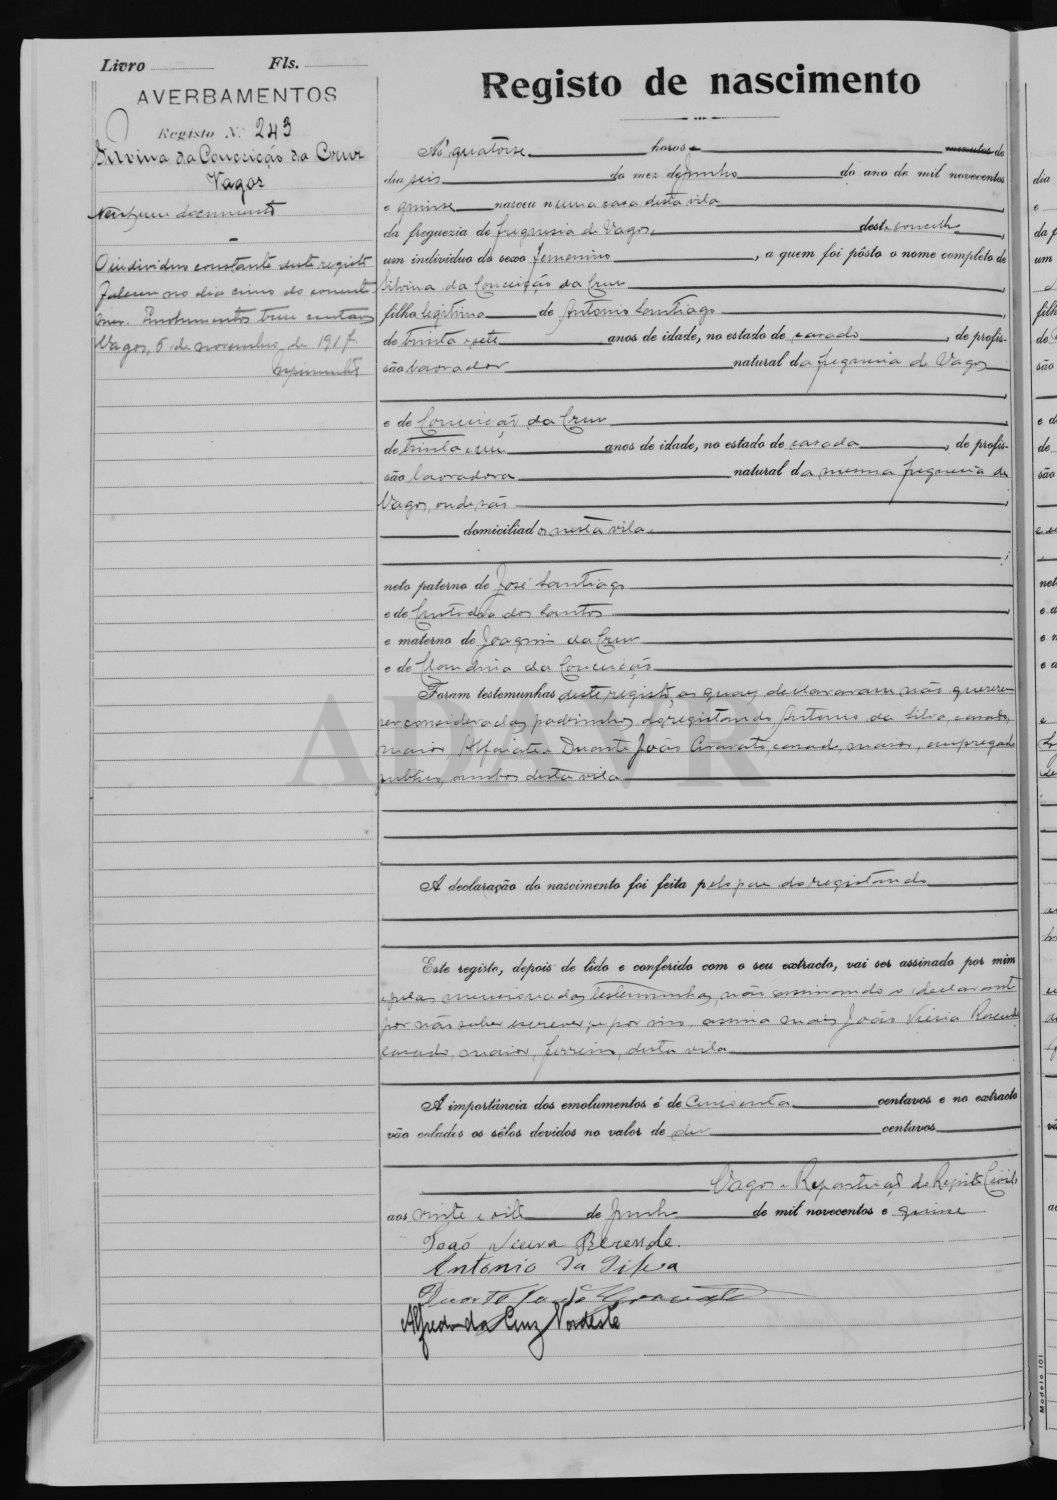 Livro Fls.
AVERBAMENTOS
Registo N.º 243
Silvina da Conceição da Cruz
Vagos
Nenhum documento
O individuo constante deste registo
faleceu no dia cinco do corrente
mez. Emolumentos trez centavos
Vagos, 6 de novembro de 1917
Registo de nascimento
Ás quatorse horas minutos do
dia seis do mez de junho do ano de mil novecentos
e quinse nasceu numa casa desta vila,
da freguezia de freguesia de Vagos, deste concelho,
um individuo do sexo femenino, a quem foi pôsto o nome completo de
Silvina da Conceição da Cruz,
filha legitima de Antonio Santiago
de trinta e sete anos de idade, no estado de casado, de profis-
são lavrador natural da freguesia de Vagos
e de Conceição da Cruz,
de trinta e um anos de idade, no estado de casada, de profis-
são lavradora natural da mesma freguesia de
Vagos, onde são
domiciliados nesta vila
neto paterno de José Santiago
e de Custodia dos Santos,
e materno de Joaquim da Cruz
e de Claudina da Conceição
Foram testemunhas deste registo, as quaes declararam não querer
ser consideradas padrinhos do registando Antonio da Silva, casado,
maior, Alfaiate e Duarte João Gravato, casado, maior, empregado
publico, ambos desta vila
A declaração do nascimento foi feita pelo pae do registando
Este registo, depois de lido e conferido com o seu extracto, vai ser assinado por mim
e pelas mencionadas testemunhas, não assinando o declarante
por não saber escrever, e por isso assina mais João Vieira Resende
casado, maior, ferreiro, desta vila
A importância dos emolumentos é de cincoenta centavos e no extracto
vão colados os sêlos devidos no valor de dez centavos
Vagos e Repartição do Registo Civil,
aos vinte e oito de junho de mil novecentos e quinse
João Vieira Resende.
Antonio da Silva
Duarte João Gravato
Alfredo da Cruz Nordeste
ADAVR
dia
e
da f
um
filh
de
são
e d
de
são
net
e d
e m
e d
Modelo 101